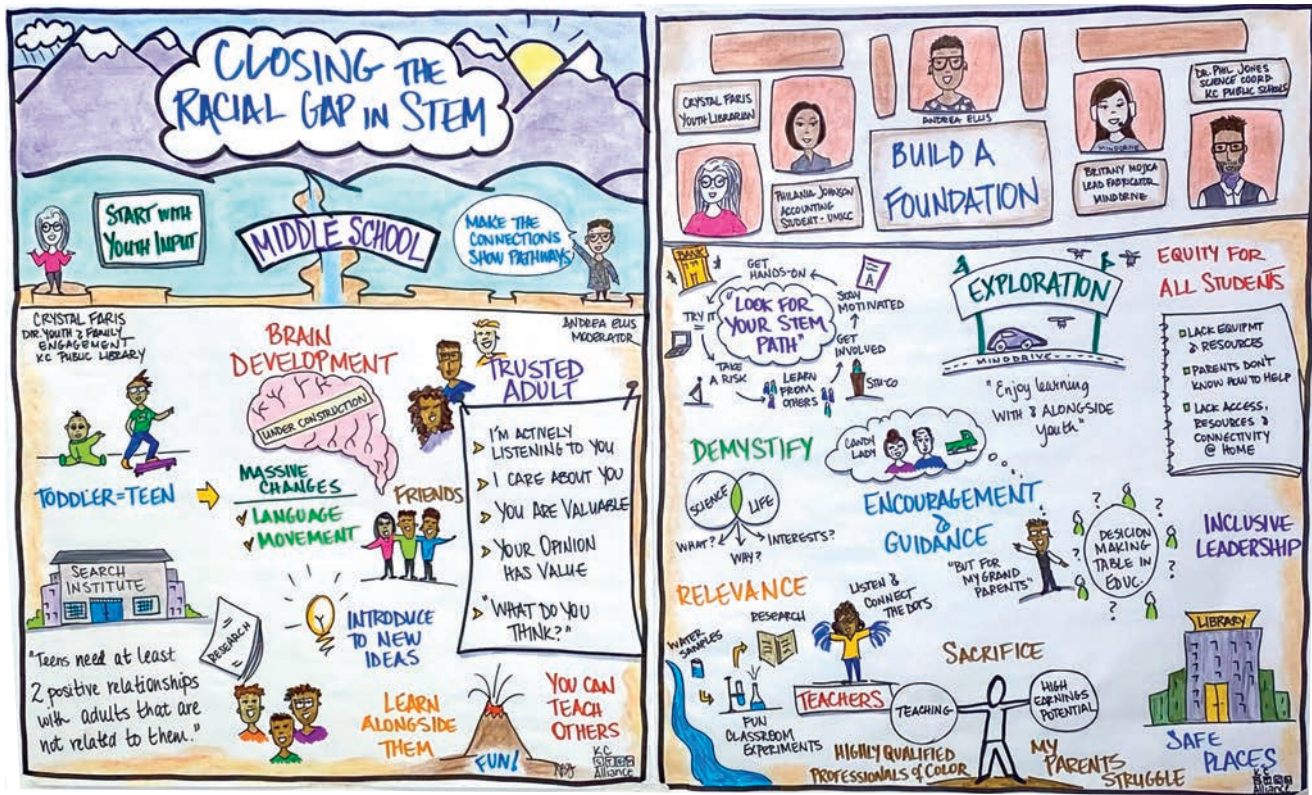 CLOSING THE
RACIAL GAP IN STEM
START WITH
YOUTH INPUT
MIDDLE SCHOOL
MAKE THE
CONNECTIONS
SHOW PATHWAYS
CRYSTAL FARIS
DIR. YOUTH & FAMILY
ENGAGEMENT
KC PUBLIC LIBRARY
BRAIN
DEVELOPMENT
UNDER CONSTRUCTION
ANDREA ELLIS
MODERATOR
TRUSTED
ADULT
I'M ACTIVELY
LISTENING TO YOU
I CARE ABOUT YOU
YOU ARE VALUABLE
YOUR OPINION
HAS VALUE
"WHAT DO YOU
THINK?"
TODDLER=TEEN
MASSIVE
CHANGES
LANGUAGE
MOVEMENT
FRIENDS
SEARCH
INSTITUTE
RESEARCH
"Teens need at least
2 positive relationships
with adults that are
not related to them."
INTRODUCE
TO NEW
IDEAS
LEARN
ALONGSIDE
THEM
FUN!
YOU CAN
TEACH
OTHERS
KC
STEM
Alliance
CRYSTAL FARIS
YOUTH LIBRARIAN
PHILANIA JOHNSON
ACCOUNTING
STUDENT - UMKC
ANDREA ELLIS
BUILD A
FOUNDATION
MINDDRIVE
BRITANY MOJICA
LEAD FABRICATOR
MINDDRIVE
DR. PHIL JONES
SCIENCE COORD.
KC PUBLIC SCHOOLS
BANK
GET
HANDS-ON
A
"LOOK FOR
YOUR STEM
PATH"
STAY
MOTIVATED
TRY IT
GET
INVOLVED
TAKE
A RISK
LEARN
FROM
OTHERS
STU-CO
EXPLORATION
MINDDRIVE
"Enjoy learning
WITH & ALONGSIDE
youth"
EQUITY FOR
ALL STUDENTS
LACK EQUIPMT
& RESOURCES
PARENTS DON'T
KNOW HOW TO HELP
LACK ACCESS,
RESOURCES &
CONNECTIVITY
@ HOME
DEMYSTIFY
SCIENCE
LIFE
WHAT?
WHY?
INTERESTS?
CANDY
LADY
ENCOURAGEMENT
&
GUIDANCE
"BUT FOR
MY GRAND
PARENTS"
? ? ? ? ? ? ?
DESICION
MAKING
TABLE IN
EDUC.
INCLUSIVE
LEADERSHIP
RELEVANCE
WATER
SAMPLES
RESEARCH
FUN
CLASSROOM
EXPERIMENTS
LISTEN &
CONNECT
THE DOTS
TEACHERS
SACRIFICE
TEACHING
HIGH
EARNINGS
POTENTIAL
HIGHLY QUALIFIED
PROFESSIONALS of COLOR
MY
PARENTS
STRUGGLE
LIBRARY
SAFE
PLACES
KC
STEM
Alliance